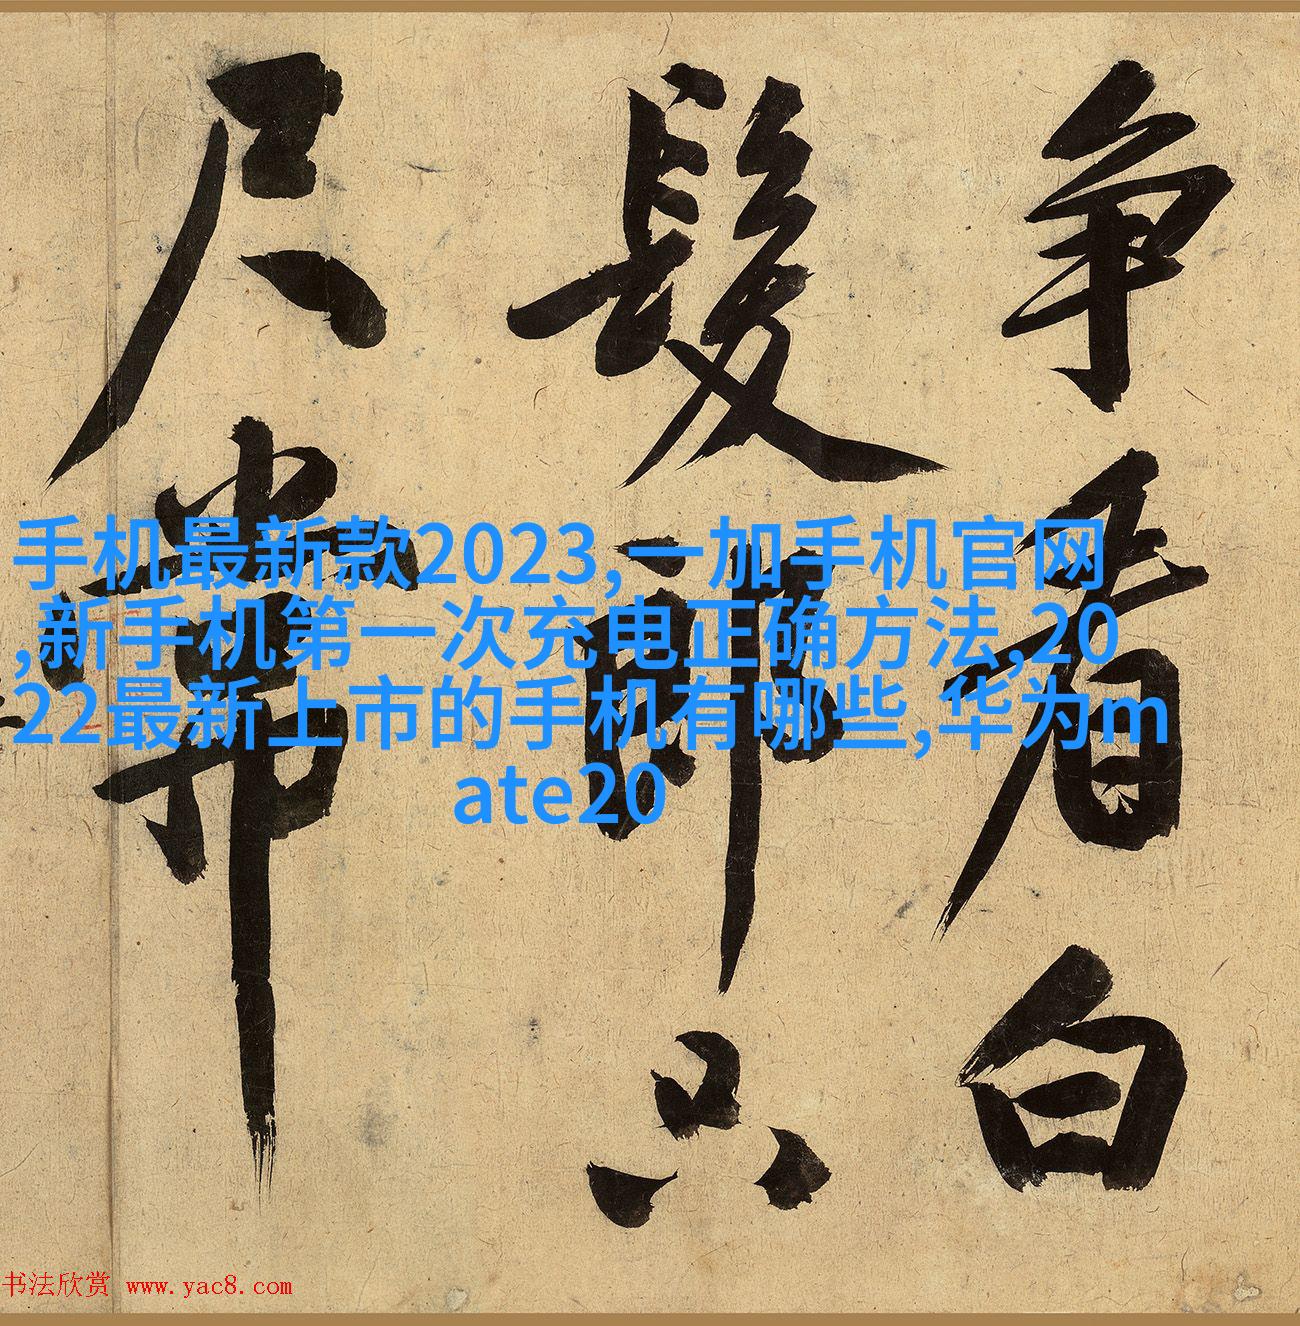 争看白
髮師只
尺常
手机最新款2023,一加手机官网
,新手机第一次充电正确方法,20
22最新上市的手机有哪些,华为m
ate20
书法欣赏 www.yac8.com